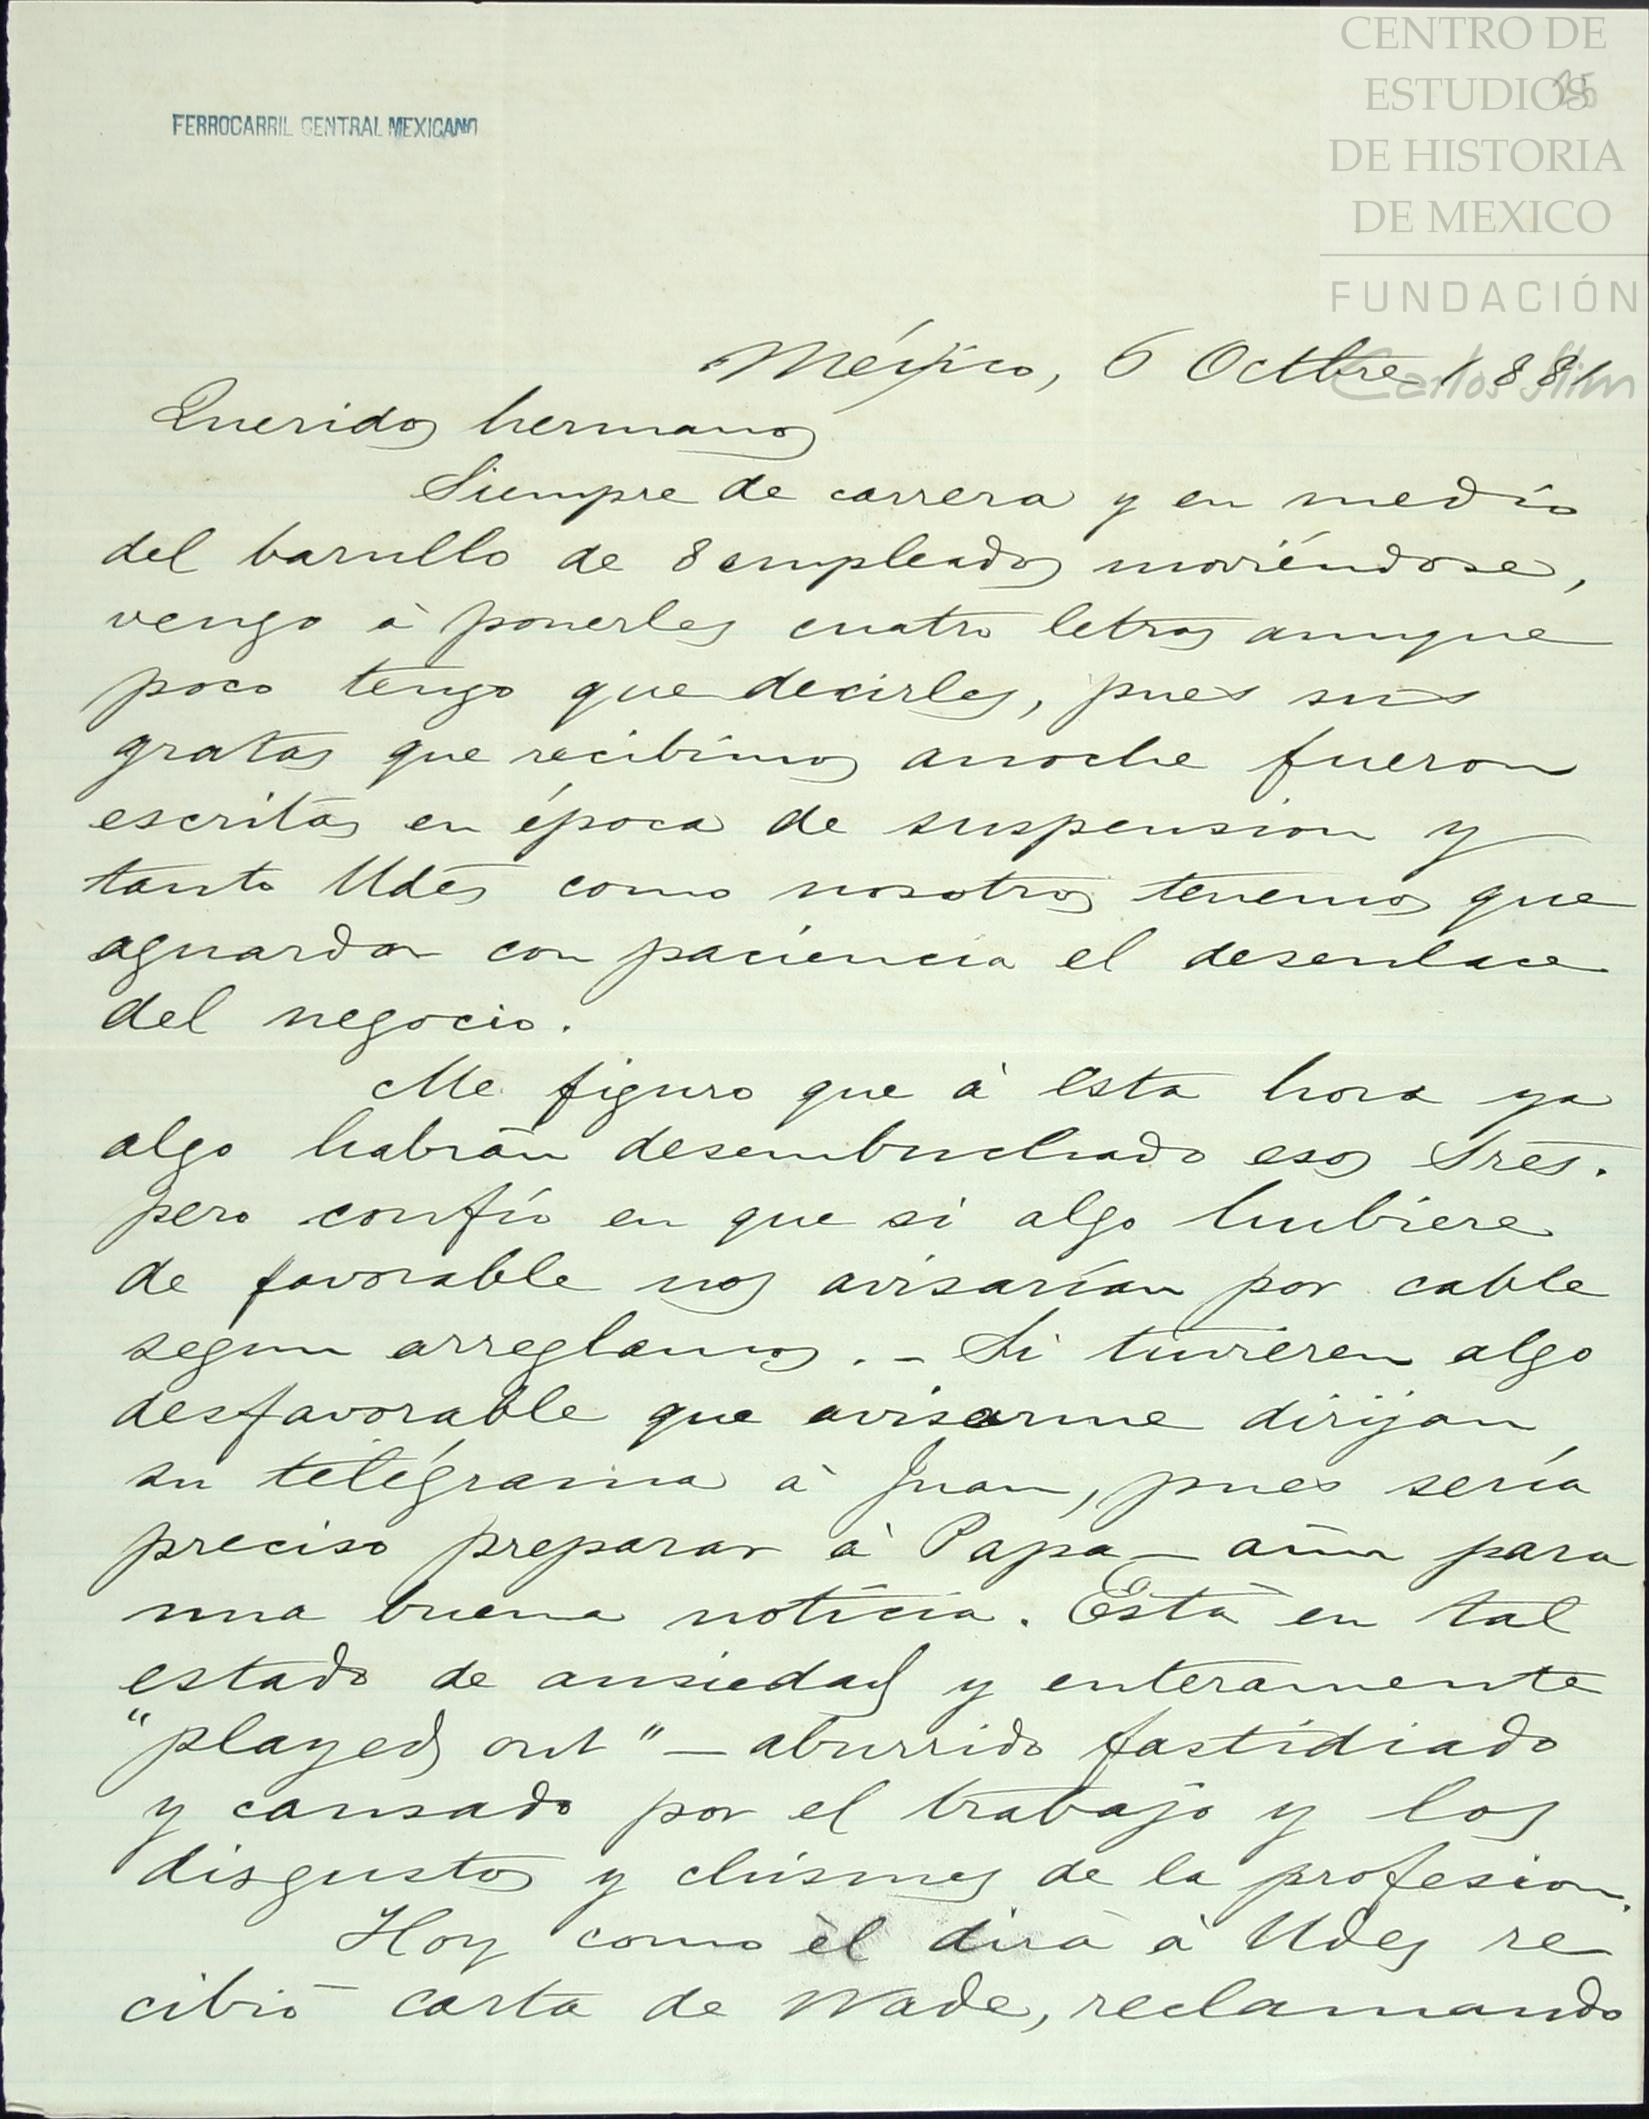 CENTRO DE
ESTUDIOS
DE HISTORIA
DE MEXICO
FUNDACIÓN
Carlos Slim
FERROCARRIL CENTRAL MEXICANO
México, 6 Octbre 1881
Queridos hermanos
Siempre de carrera y en medio
del barullo de 8 empleados moviéndose,
vengo à ponerles cuatro letras aunque
poco tengo que decirles, pues sus
gratas que recibimos anoche fueron
escritas en época de suspension y
tanto Udes como nosotros tenemos que
aguardar con paciencia el desenlace
del negocio.
Me figuro que à esta hora ya
algo habrán desembuchado esos Sres.
pero confío en que si algo hubiere
de favorable nos avisarían por cable
segun arreglamos. - Si tuvieren algo
desfavorable que avisarme dirijan
su telégrama à Juan, pues sería
preciso preparar à Papa - aún para
una buena noticia. Està en tal
estado de ansiedad y enteramente
"played out" - aburrido fastidiado
y cansado por el trabajo y los
disgustos y chismes de la profesion.
Hoy como èl dirà à Udes re
cibió carta de Wade, reclamando